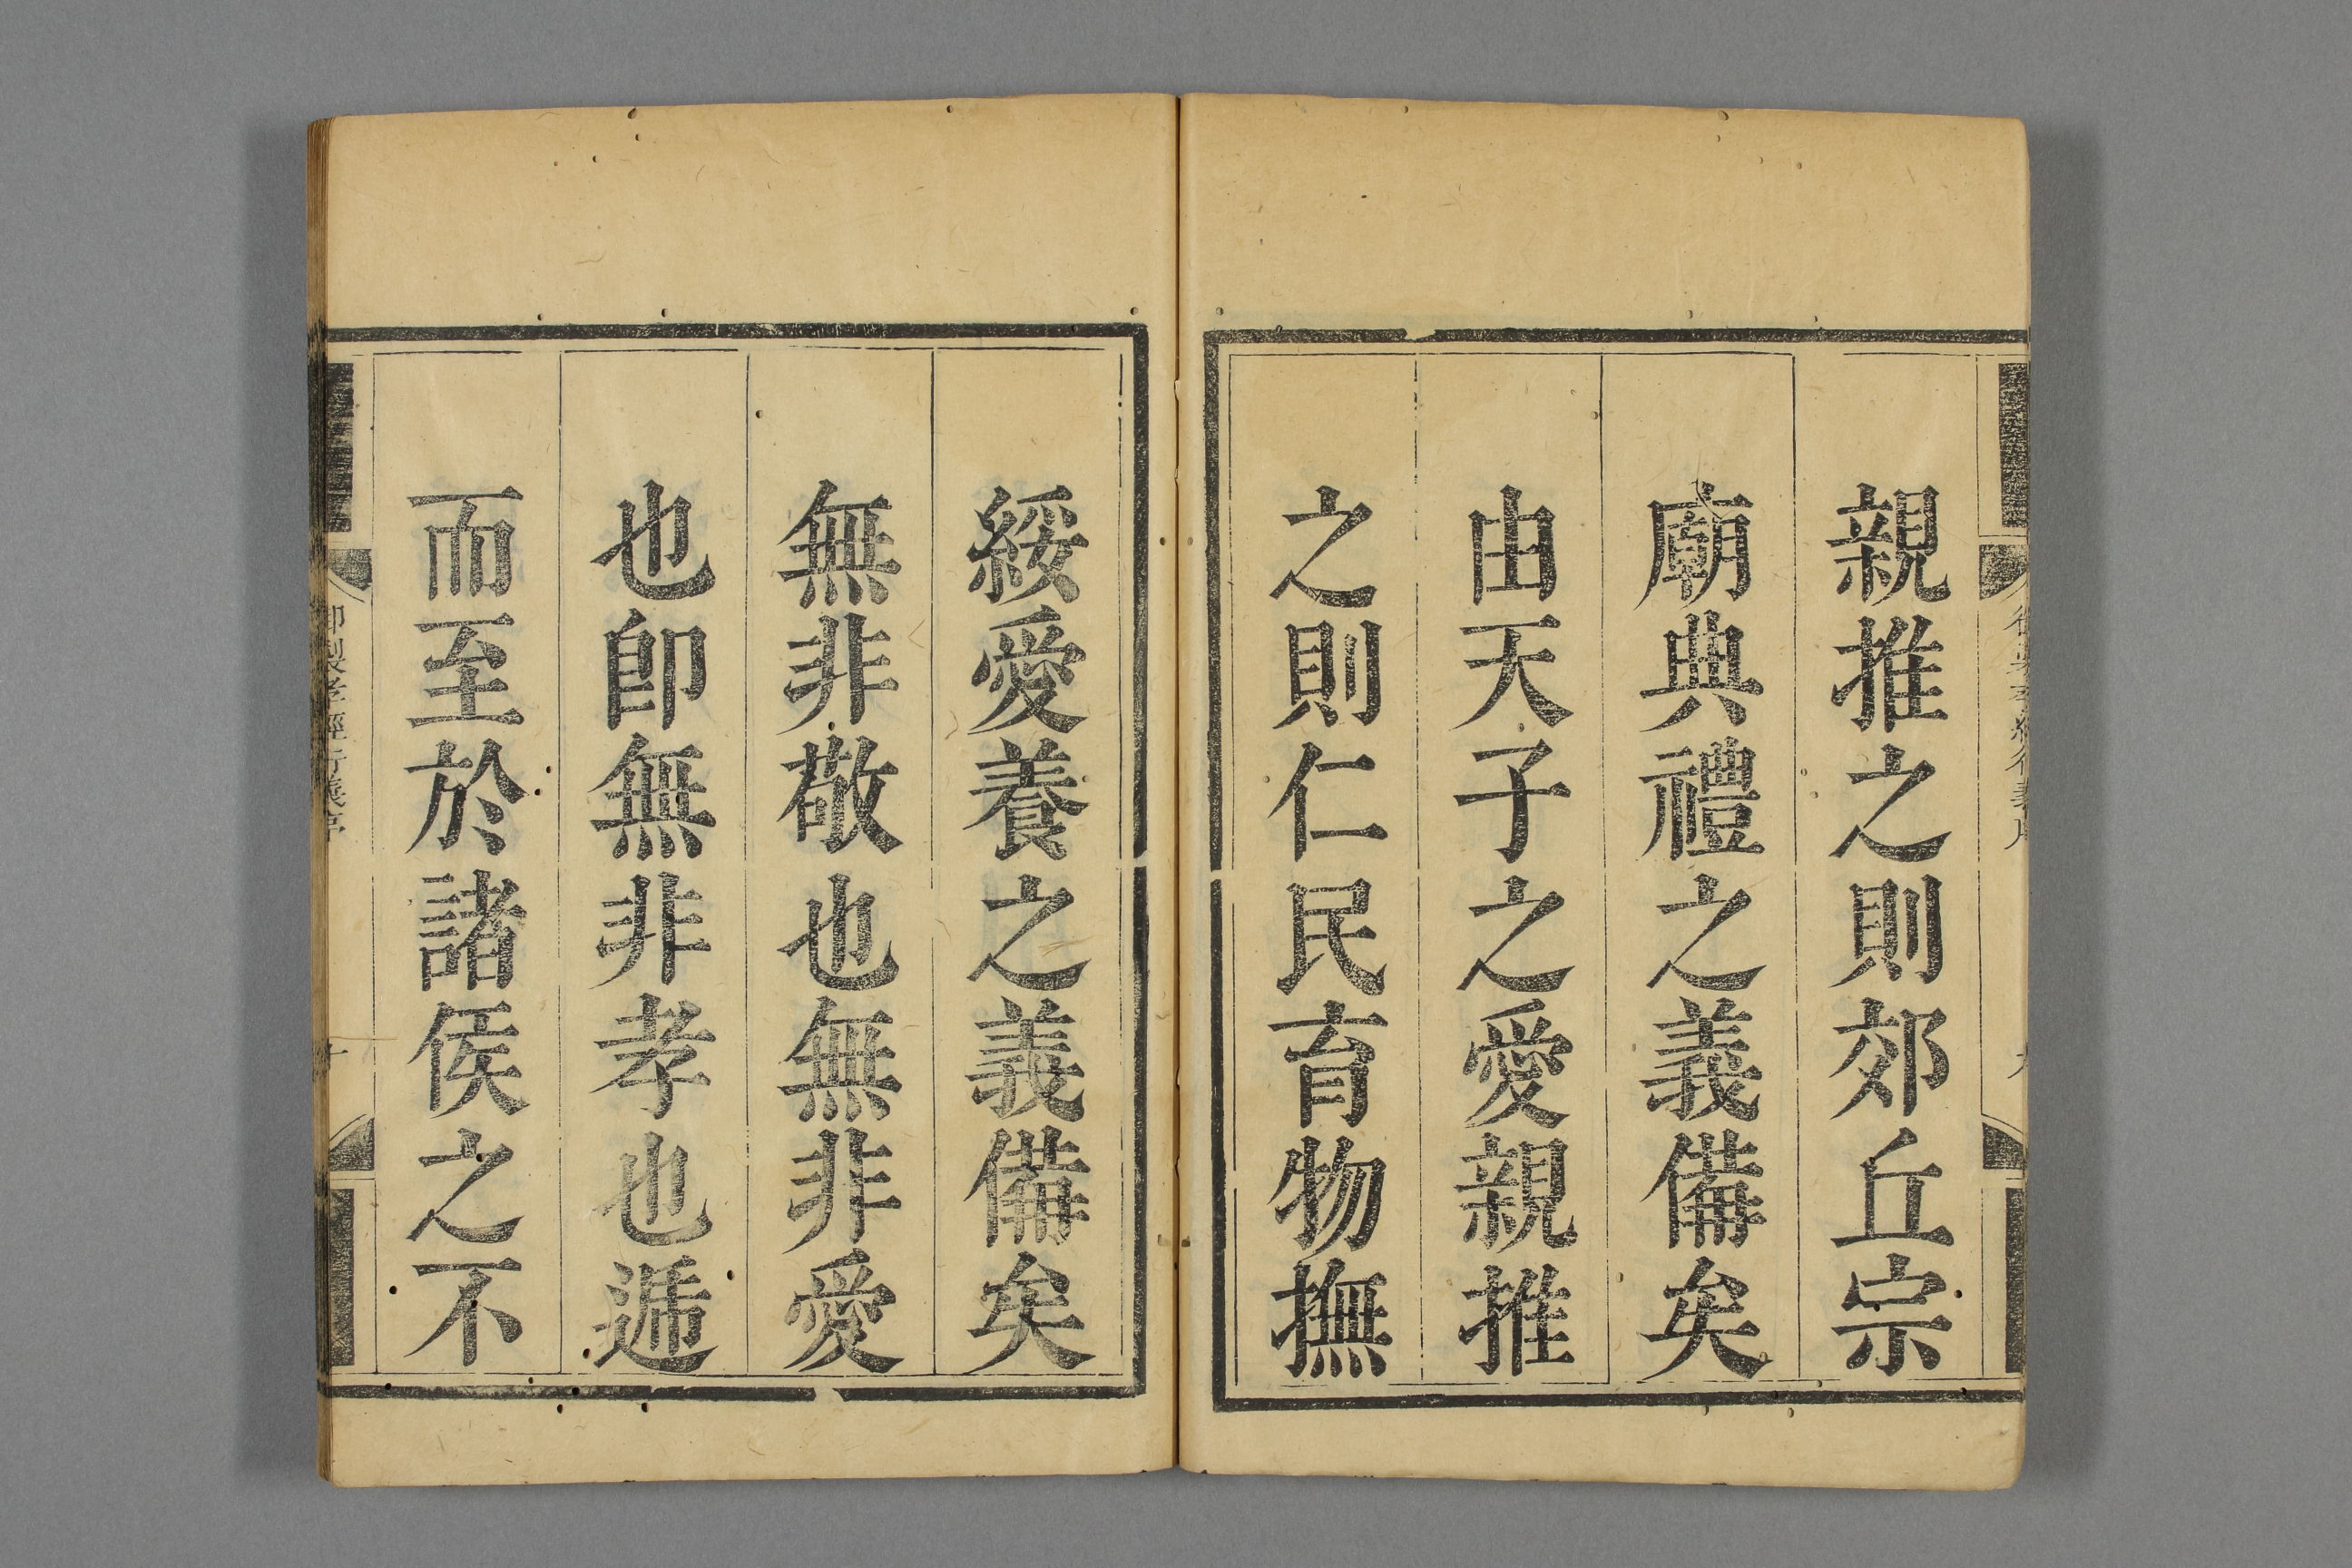 親推之則郊丘宗
廟典禮之義備矣
由天子之愛親推
之則仁民育物撫
綏愛養之義備矣
無非敬也無非愛
也卽無非孝也遞
而至於諸侯之不